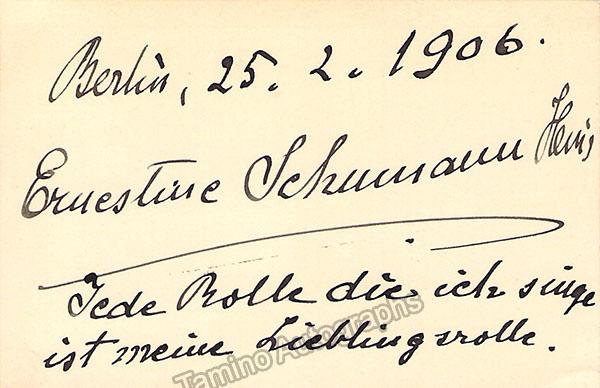 Berlin, 25. 2. 1906.
Ernestine Schumann Heink
Jede Rolle die ich singe
ist meine Lieblingsrolle.
Tamino Autographs